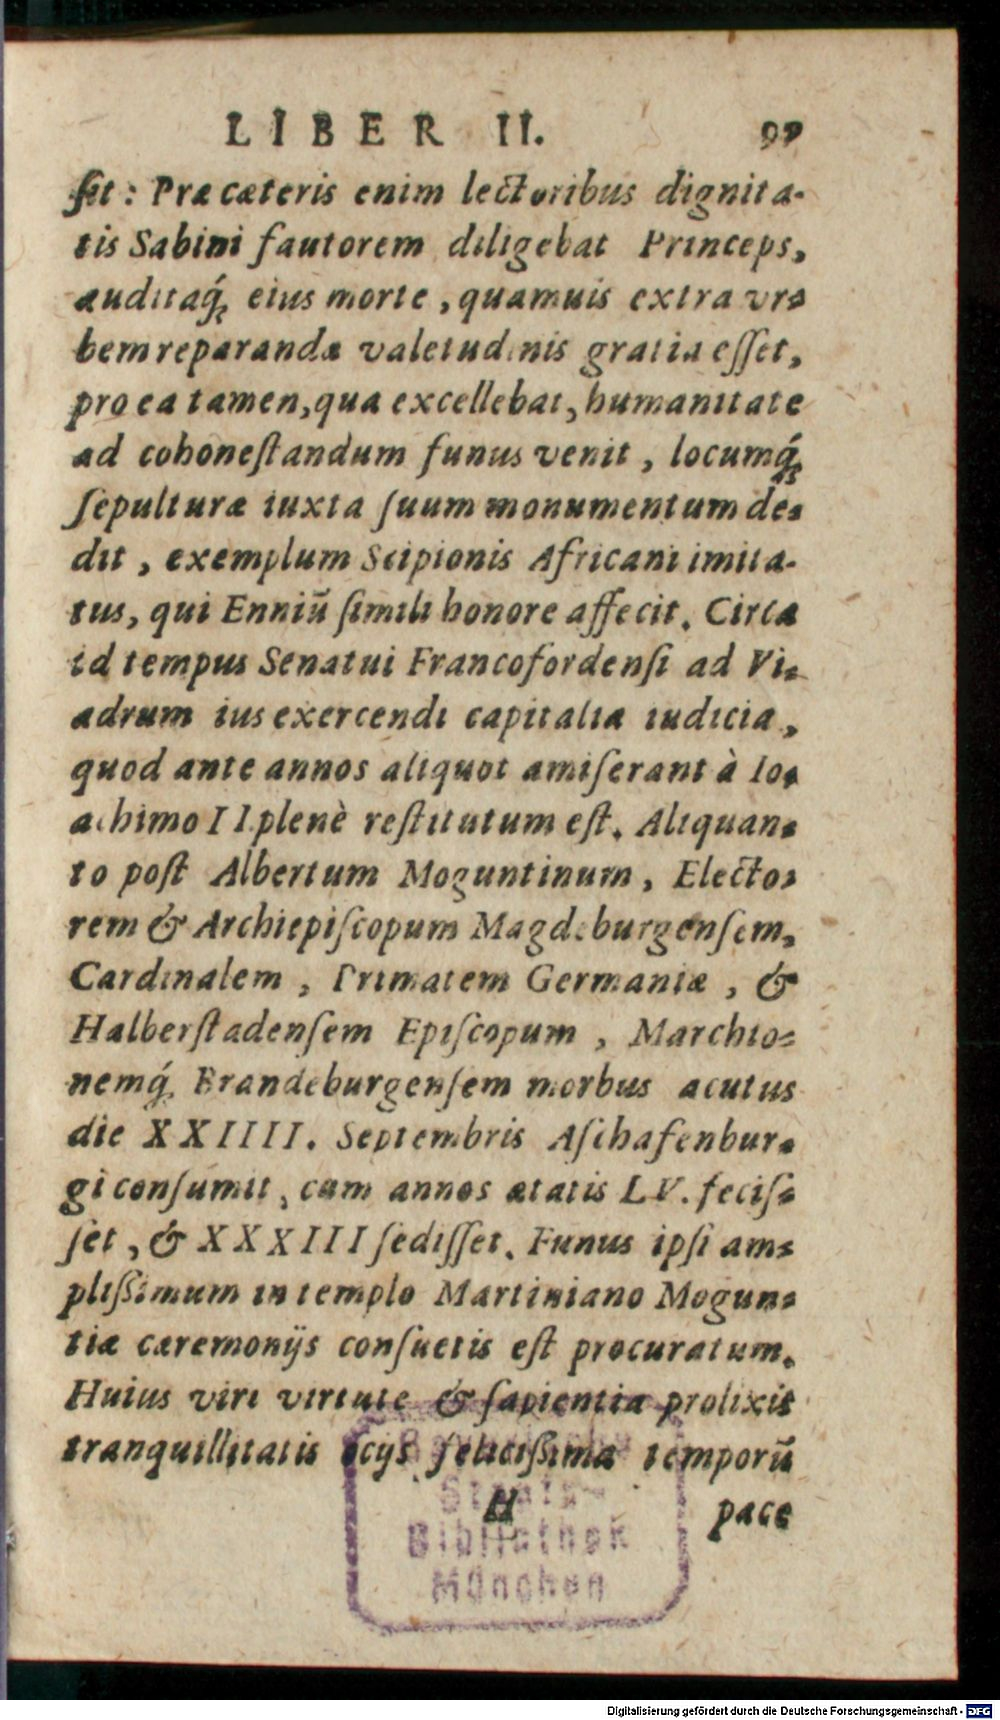 LIBER II. 97
ſit: Præ cæteris enim lectoribus dignita-
tis Sabini fautorem diligebat Princeps,
auditaq́; eius morte, quamuis extra vr-
bem reparandæ valetudinis gratia eſſet,
pro ea tamen, qua excellebat, humanitate
ad cohoneſtandum funus venit, locumq́;
ſepulturæ iuxta ſuum monumentum de-
dit, exemplum Scipionis Africani imita-
tus, qui Enniū ſimili honore affecit. Circa
id tempus Senatui Francofordenſi ad Vi-
adrum ius exercendi capitalia iudicia,
quod ante annos aliquot amiſerant à Io-
achimo II plenè reſtitutum eſt. Aliquan-
to poſt Albertum Moguntinum, Electo-
rem & Archiepiſcopum Magdeburgenſem,
Cardinalem, Primatem Germaniæ, &
Halberſtadenſem Epiſcopum, Marchio-
nemq́; Brandeburgenſem morbus acutus
die XXIIII. Septembris Aſchafenbur-
gi conſumit, cum annos ætatis LV. feciſ-
ſet, & XXXIII ſediſſet. Funus ipſi am-
pliſſimum in templo Martiniano Mogun-
tiæ cæremonijs conſuetis eſt procuratum.
Huius viri virtute & ſapientia prolixit
tranquillitatis ocijs feliciſſima temporū
H pace
Bayerische
Staats-
Bibliothek
München
Digitalisierung gefördert durch die Deutsche Forschungsgemeinschaft - DFG